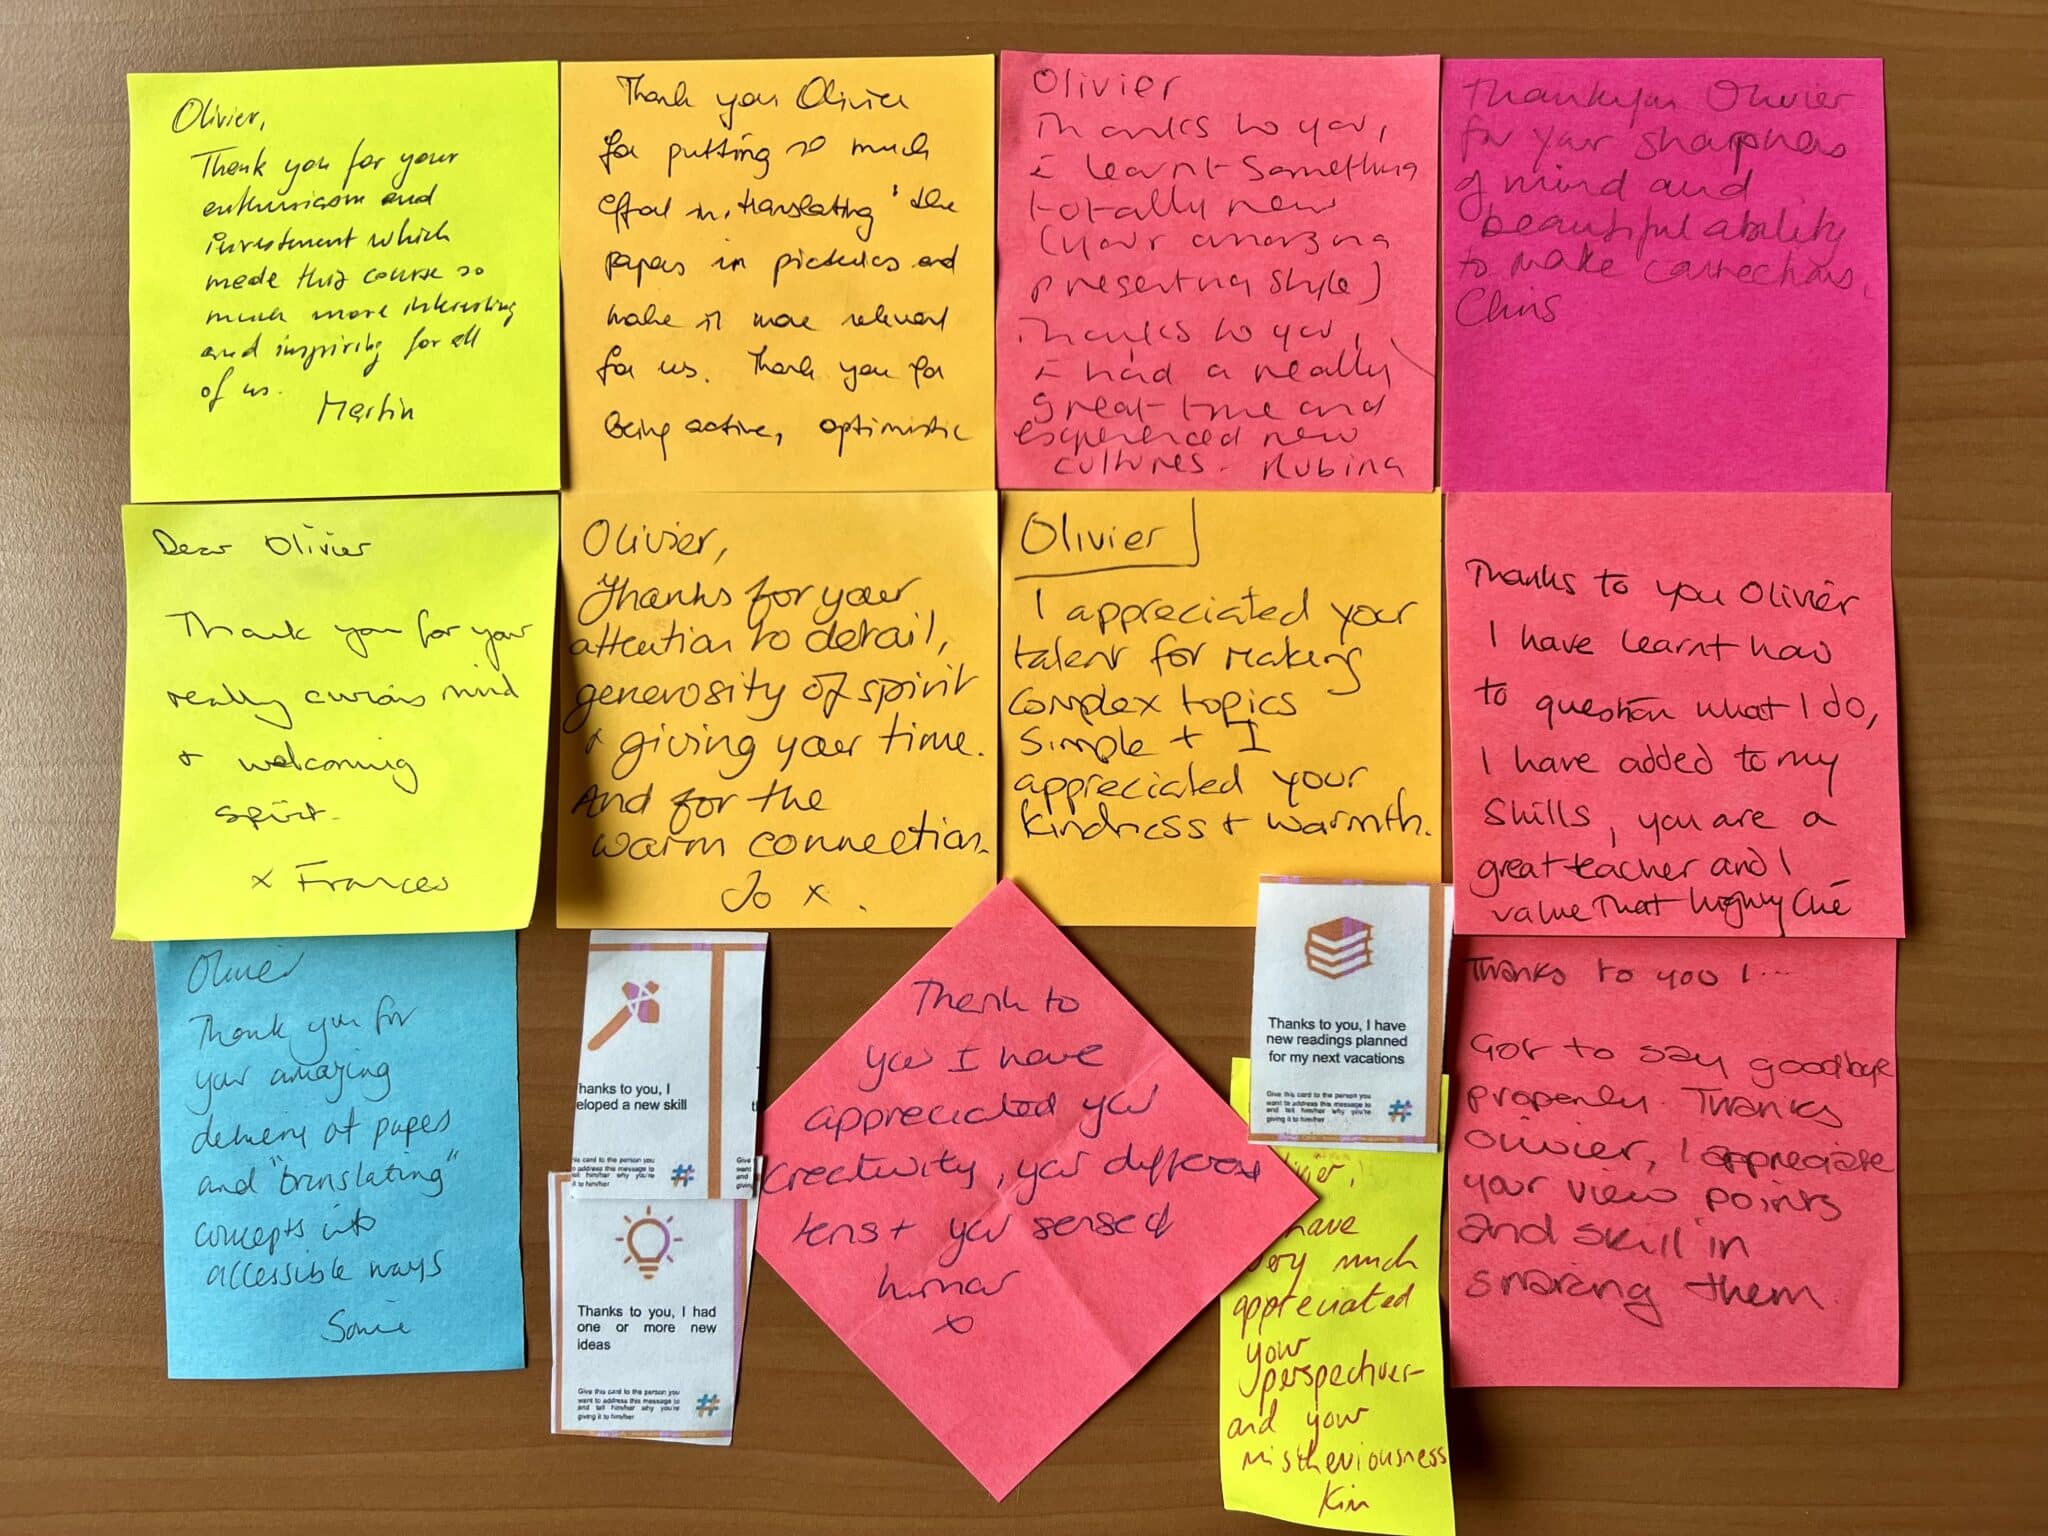 Olivier,
Thank you for your
enthusiasm and
investment which
made this course so
much more interesting
and inspiring for all
of us.
Martin
Thank you Olivier
for putting so much
effort in "translating" the
papers in pictures and
make it more relevant
for us. Thank you for
being active, optimistic
Olivier
Thanks to you,
I learnt something
totally new
(your amazing
presenting style)
Thanks to you,
I had a really
great time and
experienced new
cultures. Rubina
Thankyou Olivier
for your sharpness
of mind and
beautiful ability
to make connections,
Chris
Dear Olivier
Thank you for your
really curious mind
+ welcoming
spirit.
x Frances
Olivier,
Thanks for your
attention to detail,
generosity of spirit
+ giving your time.
And for the
warm connection.
Jo x.
Olivier
I appreciated your
talent for making
complex topics
simple + I
appreciated your
kindness + warmth.
Thanks to you Olivier
I have learnt how
to question what I do,
I have added to my
skills, you are a
great teacher and I
value that highly
Olivier
Thank you for
your amazing
delivery of papers
and "translating"
concepts into
accessible ways
hanks to you, I
eloped a new skill
his card to the person you
to address this message to
ll him/her why you're
it to him/her
Thanks to you, I had
one or more new
ideas
Give this card to the person you
want to address this message to
and tell him/her why you're
giving it to him/her
Thank to
you I have
appreciated your
creativity, your different
lens + your
humor
x
Thanks to you, I have
new readings planned
for my next vacations
Give this card to the person you
want to address this message to
and tell him/her why you're
giving it to him/her
livier,
have
very much
appreciated
your
perspective
and your
mistheviousness
Kim
Thanks to you I...
Got to say goodbye
properly. Thanks
Olivier, I appreciate
your view points
and skill in
sharing them.